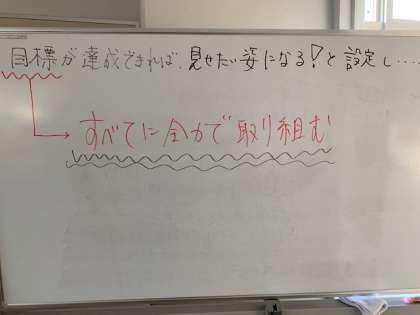 目標が達成できれば、見せたい姿になる!と設定し.....
すべてに全力で取り組む